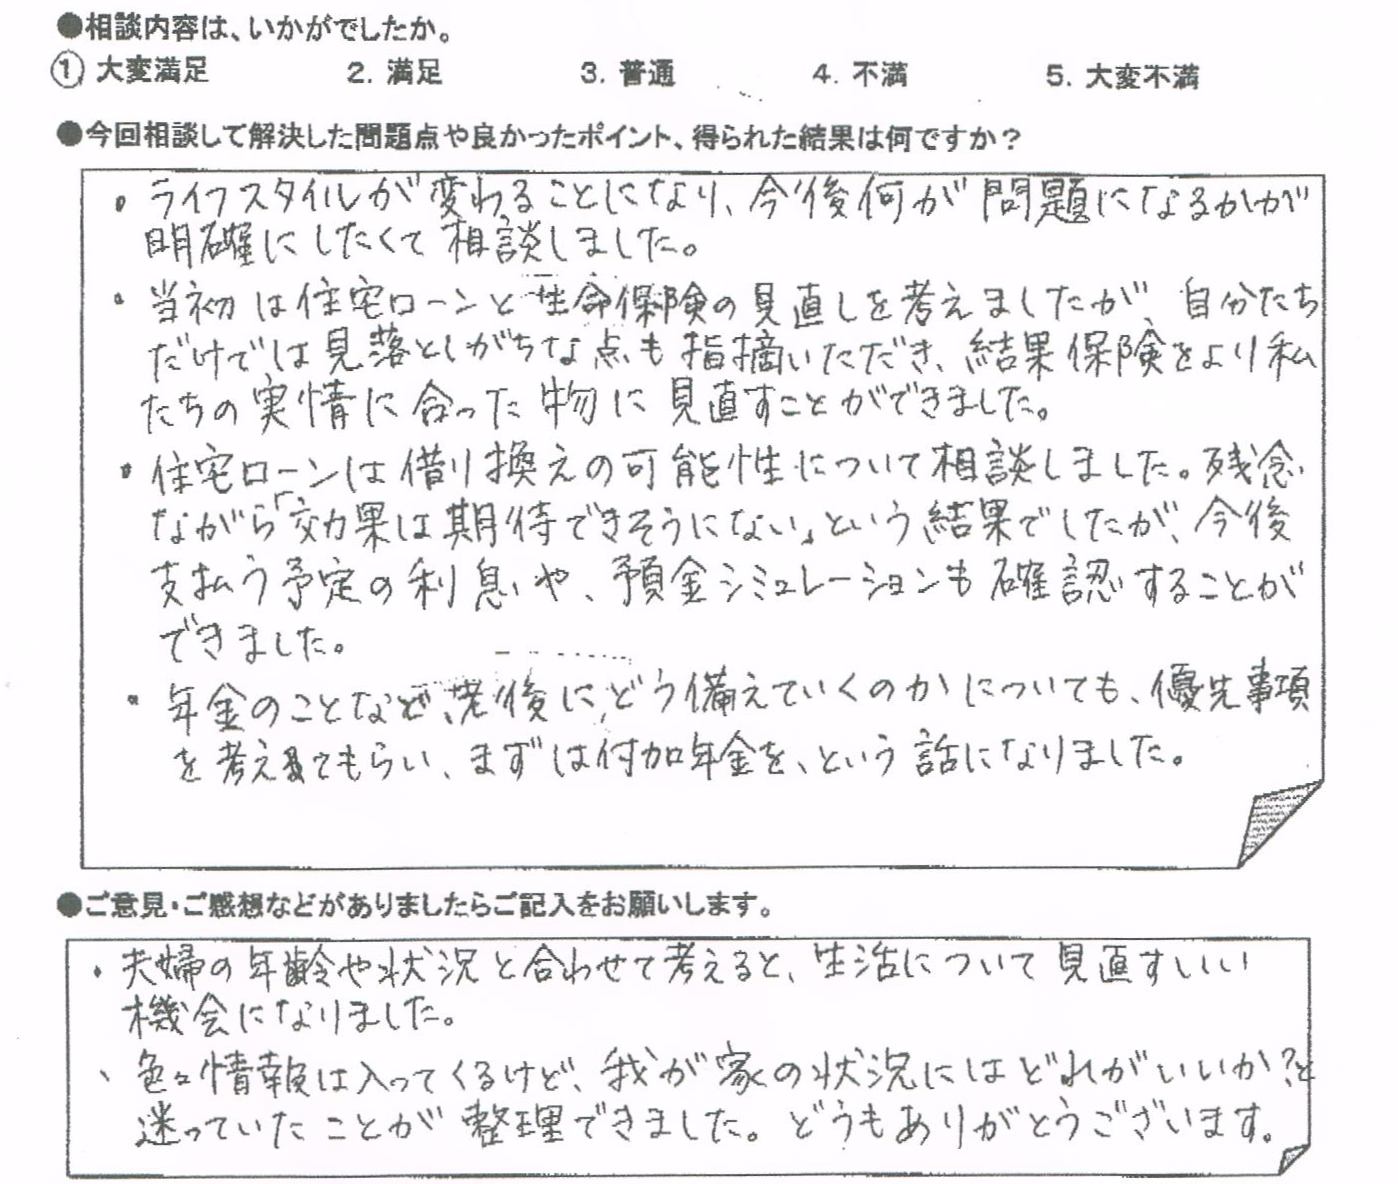 ●相談内容は、いかがでしたか。
① 大変満足 2. 満足 3. 普通 4. 不満 5. 大変不満
●今回相談して解決した問題点や良かったポイント、得られた結果は何ですか？
・ライフスタイルが変わることになり、今後何が問題になるかが
明確にしたくて相談しました。
・当初は住宅ローンと生命保険の見直しを考えましたが、自分たち
だけでは見落としがちな点も指摘いただき、結果保険をより私
たちの実情に合った物に見直すことができました。
・住宅ローンは借り換えの可能性について相談しました。残念
ながら「効果は期待できそうにない」という結果でしたが、今後
支払う予定の利息や、預金シミュレーションも確認することが
できました。
・年金のことなど、老後に、どう備えていくのかについても、優先事項
を考えてもらい、まずは付加年金を、という話になりました。
●ご意見・ご感想などがありましたらご記入をお願いします。
・夫婦の年齢や状況と合わせて考えると、生活について見直すいい
機会になりました。
・色々情報は入ってくるけど、我が家の状況にはどれがいいか？と
迷っていたことが整理できました。どうもありがとうございます。